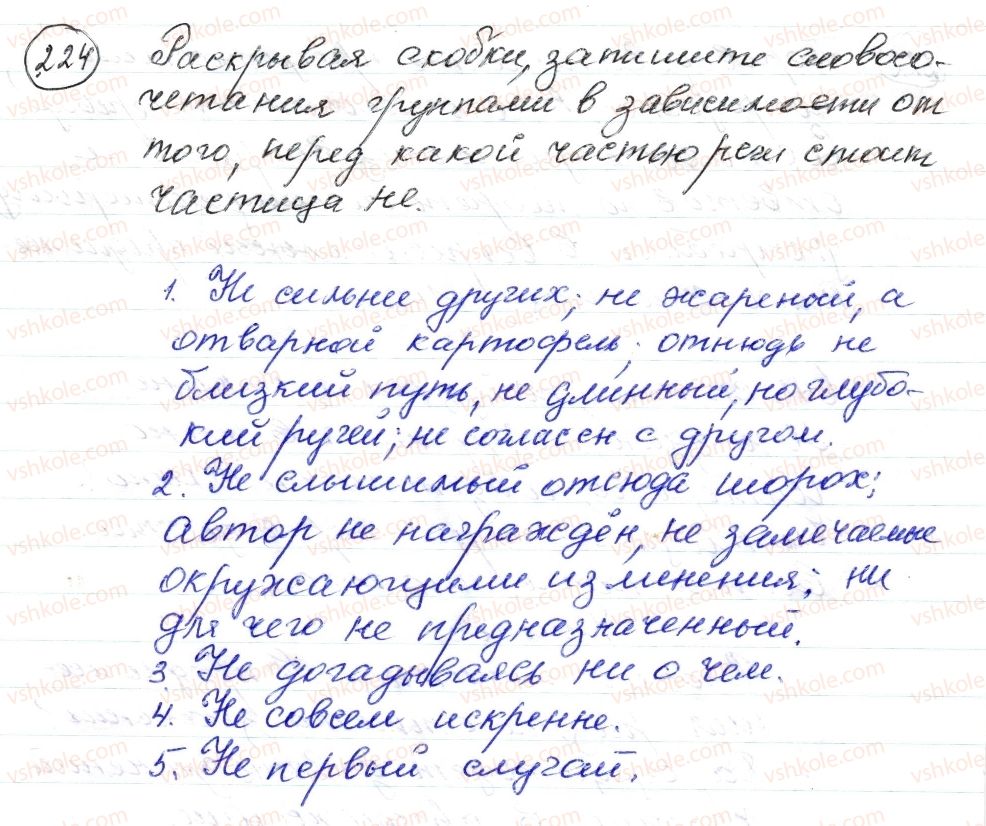 224 Раскрывая скобки, запишите словосо-
четания группами в зависимости от
того, перед какой частью речи стоит
частица не.
1. Не сильнее других; не жареный, а
отварной картофель; отнюдь не
близкий путь, не длинный, но глубо-
кий ручей; не согласен с другом.
2. Не слышимый отсюда шорох;
автор не награждён, не замечаемые
окружающими изменения; ни
для чего не предназначенный.
3. Не догадываясь ни о чем.
4. Не совсем искренне.
5. Не первый случай.